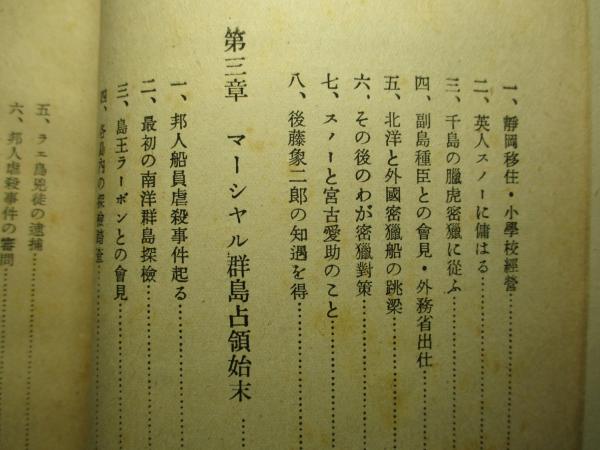 一、靜岡移住・小學校經營……
二、英人スノーに傭はる……
三、千島の臘虎密獵に從ふ……
四、副島種臣との會見・外務省出仕
五、北洋と外國密獵船の跳梁……
六、その後のわが密獵對策……
七、スノーと宮古愛助のこと……
八、後藤象二郎の知遇を得……
第三章 マーシヤル群島占領始末……
一、邦人船員虐殺事件起る……
二、最初の南洋群島探檢……
三、島王ラーボンとの會見……
四、各島内の探檢
五、ラエ島兇徒の逮捕……
六、邦人虐殺事件の審問